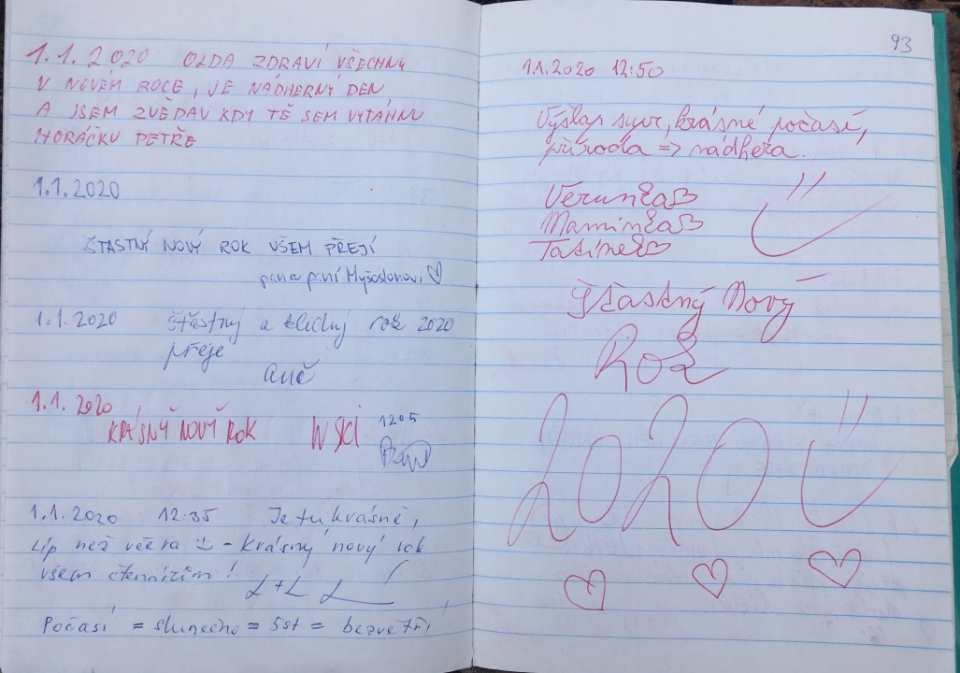 1.1.2020 OLDA ZDRAVÍ VŠECHNY
V NOVÉM ROCE, JE NÁDHERNÝ DEN
A JSEM ZVĚDAV KDY TĚ SEM VYTÁHNU
HORÁČKU PETŘE
1.1.2020
ŠŤASTNÝ NOVÝ ROK VŠEM PŘEJÍ
pan a paní Myšoslonovi ♡
1.1.2020 Šťastný a klidný rok 2020
přeje
Anč
1.1.2020
KRÁSNÝ NOVÝ ROK
1205
1.1.2020 12:35 Je tu krásně,
líp než včera - Krásný nový rok
všem čtenářům!
L+L
Počasí = slunečno = 5st = bezvětří
93
1.1.2020 12:50
Výšlap super, krásné počasí,
příroda => nádhera.
Verunka♡
Maminka♡
Tatínek♡
Šťastný Nový
Rok
2020